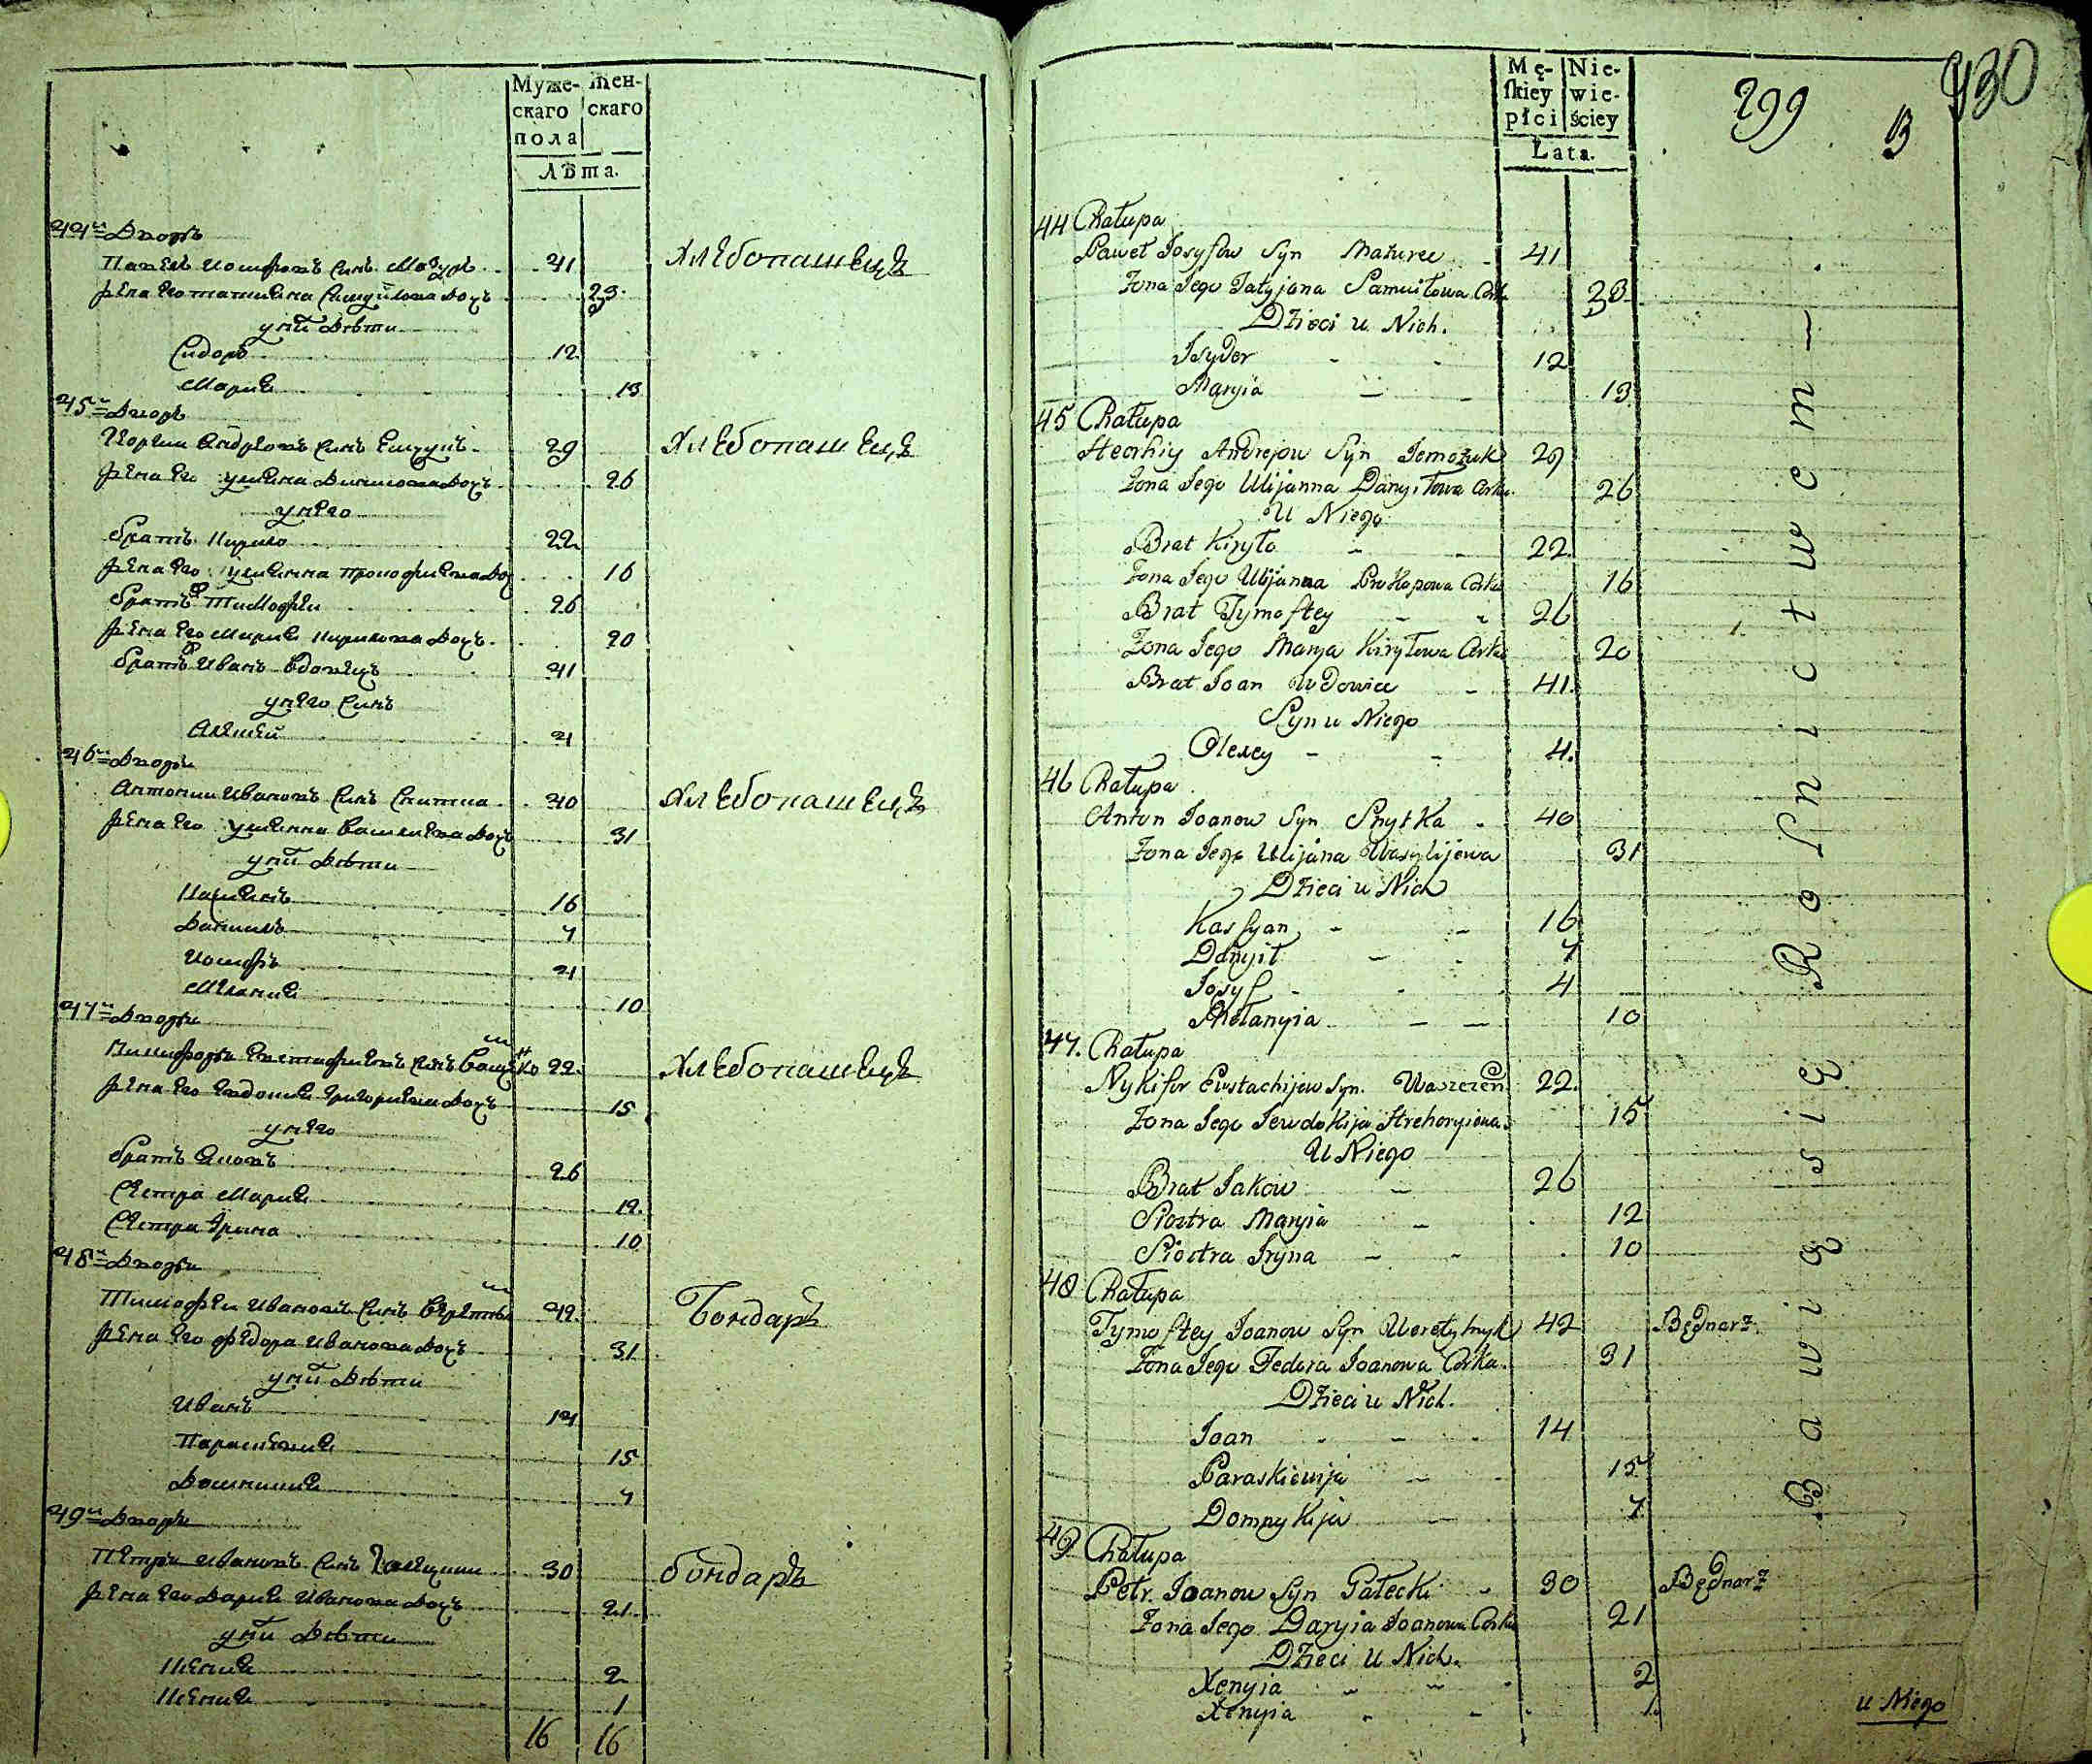 Муже-
скаго
пола
Жен-
скаго
Лѣта.
44й Дворъ
Павелъ Иосифовъ Синъ Мазуръ 41
Жена Его Татиана Самуйлова Дочъ 23
у них Дѣти
Сидоръ 12
Мария 13
Хлебопашецъ
45й Дворъ
Андреовъ Синъ 29
Жена Его Улиана Дочъ 26
у него
братъ Кирило 22
Жена Его Улианна Прокофиева Доч 16
братъ Тимофеи 26
Жена Его Мария Кирилова Дочъ 20
братъ Иванъ вдовецъ 41
у него Синъ
Алексей 4
Хлебопашецъ
46й Дворъ
Антонии Ивановъ Синъ Снитка 40
Жена Его Улианна Василиева Дочъ 31
у них Дѣти
Касиянъ 16
Данилъ 7
Иосифъ 4
Мелания 10
Хлебопашецъ
47й Дворъ
Никифоръ Евстафиевъ Синъ 22
Жена Его Евдокия Григориева Дочъ 15
у него
братъ Яковъ 26
Сестра Мария 12
Сестра Ирина 10
Хлебопашецъ
48й Дворъ
Тимофеи Ивановъ Синъ 42
Жена Его Федора Иванова Дочъ 31
у них Дѣти
Иванъ 14
Параскевия 15
Домникия 7
Бондаръ
49й Дворъ
Петръ Ивановъ Синъ Галецкии 30
Жена Его Дария Иванова Дочъ 21
у них Дѣти
Ксения 2
Ксения 1
бондаръ
16 16
Mę-
ſkiey
płci
Nie-
wie-
ściey
Lata.
299
B
430
44 Chałupa
Paweł Josyfow Syn Mazurec 41
Zona Jego Tatyjana Samuiłowa Corka 23
Dzieci u Nich.
Isyder 12
Maryia 13
45 Chałupa
Heorhiy Andrejow Syn Jemożuk 29
Zona Jego Ulijanna Danyiłowa Corka 26
U Niego
Brat Kiryło 22
Zona Jego Ulijanna Prokopowa Corka 16
Brat Tymoftey 26
Zona Jego Marya Kiryłowa Corka 20
Brat Joan Wdowiec 41.
Syn u Niego
Olexey 4.
46 Chałupa
Anton Joanow Syn Snytka 40
Zona Jego Ulijana Wasylijowa 31
Dzieci u Nich
Kassyan 16
Danyił 7
Josyf 4
Mełanyia 10
47. Chałupa
Nykifor Eustachijow Syn. Waszczen 22.
Zona Jego Jewdokija Hrehoryiowa 15
U Niego
Brat Jakow 26
Siostra Maryia 12
Siostra Iryna 10
48 Chałupa
Tymoftey Joanow Syn Weretylnyk 42 Będnarz
Zona Jego Fedora Joanowa Corka. 31
Dzieci u Nich.
Joan 14
Paraskiewija 15
Domnykija 7
49 Chałupa
Petr. Joanow Syn Gałecki 30 Będnarz
Zona Jego Daryia Joanowa Corka 21
Dzieci U Nich.
Xenyia 2
Xenyia 1.
Bawią się Rolnictwem —
u Niego